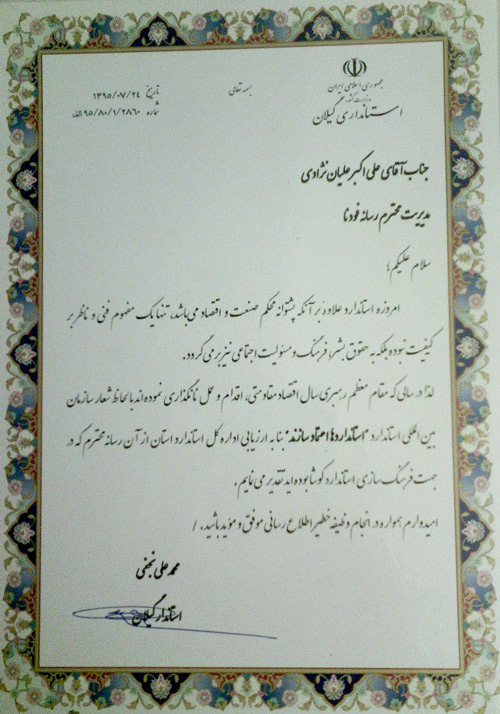 بسمه تعالی
جمهوری اسلامی ایران
وزارت کشور
استانداری گیلان
تاریخ ۱۳۹۵/۰۷/۲۴
شماره ۹۵/۸۰/۱/۲۸۶۰الف
جناب آقای علی اکبر علیان نژادی
مدیریت محترم رسانه فودنا
سلام علیکم؛
امروزه استاندارد علاوه بر آنکه پشتوانه محکم صنعت و اقتصاد می‌باشد، تنها یک مفهوم فنی و ناظر بر
کیفیت نبوده بلکه به حقوق بشر، فرهنگ و مسئولیت اجتماعی نیز بر می گردد.
لذا در سالی که مقام معظم رهبری سال اقتصاد مقاومتی، اقدام و عمل نامگذاری نموده اند با لحاظ شعار سازمان
بین المللی استاندارد "استانداردها اعتماد سازند" بنا به ارزیابی اداره کل استاندارد استان از آن رسانه محترم که در
جهت فرهنگ سازی استاندارد کوشا بوده اید تقدیر می نمایم.
امیدوارم همواره در انجام وظیفه خطیر اطلاع رسانی موفق و مؤید باشید. /
محمد علی نجفی
استاندار گیلان